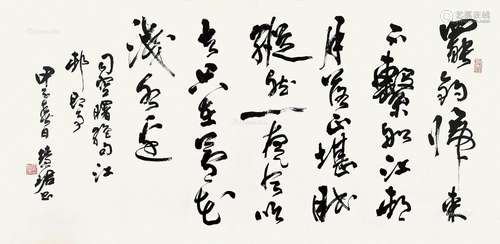 罷釣歸來
不繫船江邨
月落正堪眠
縱然一夜風吹
去只在蘆花
淺水邊
司空曙江
邨即事
甲子春日書